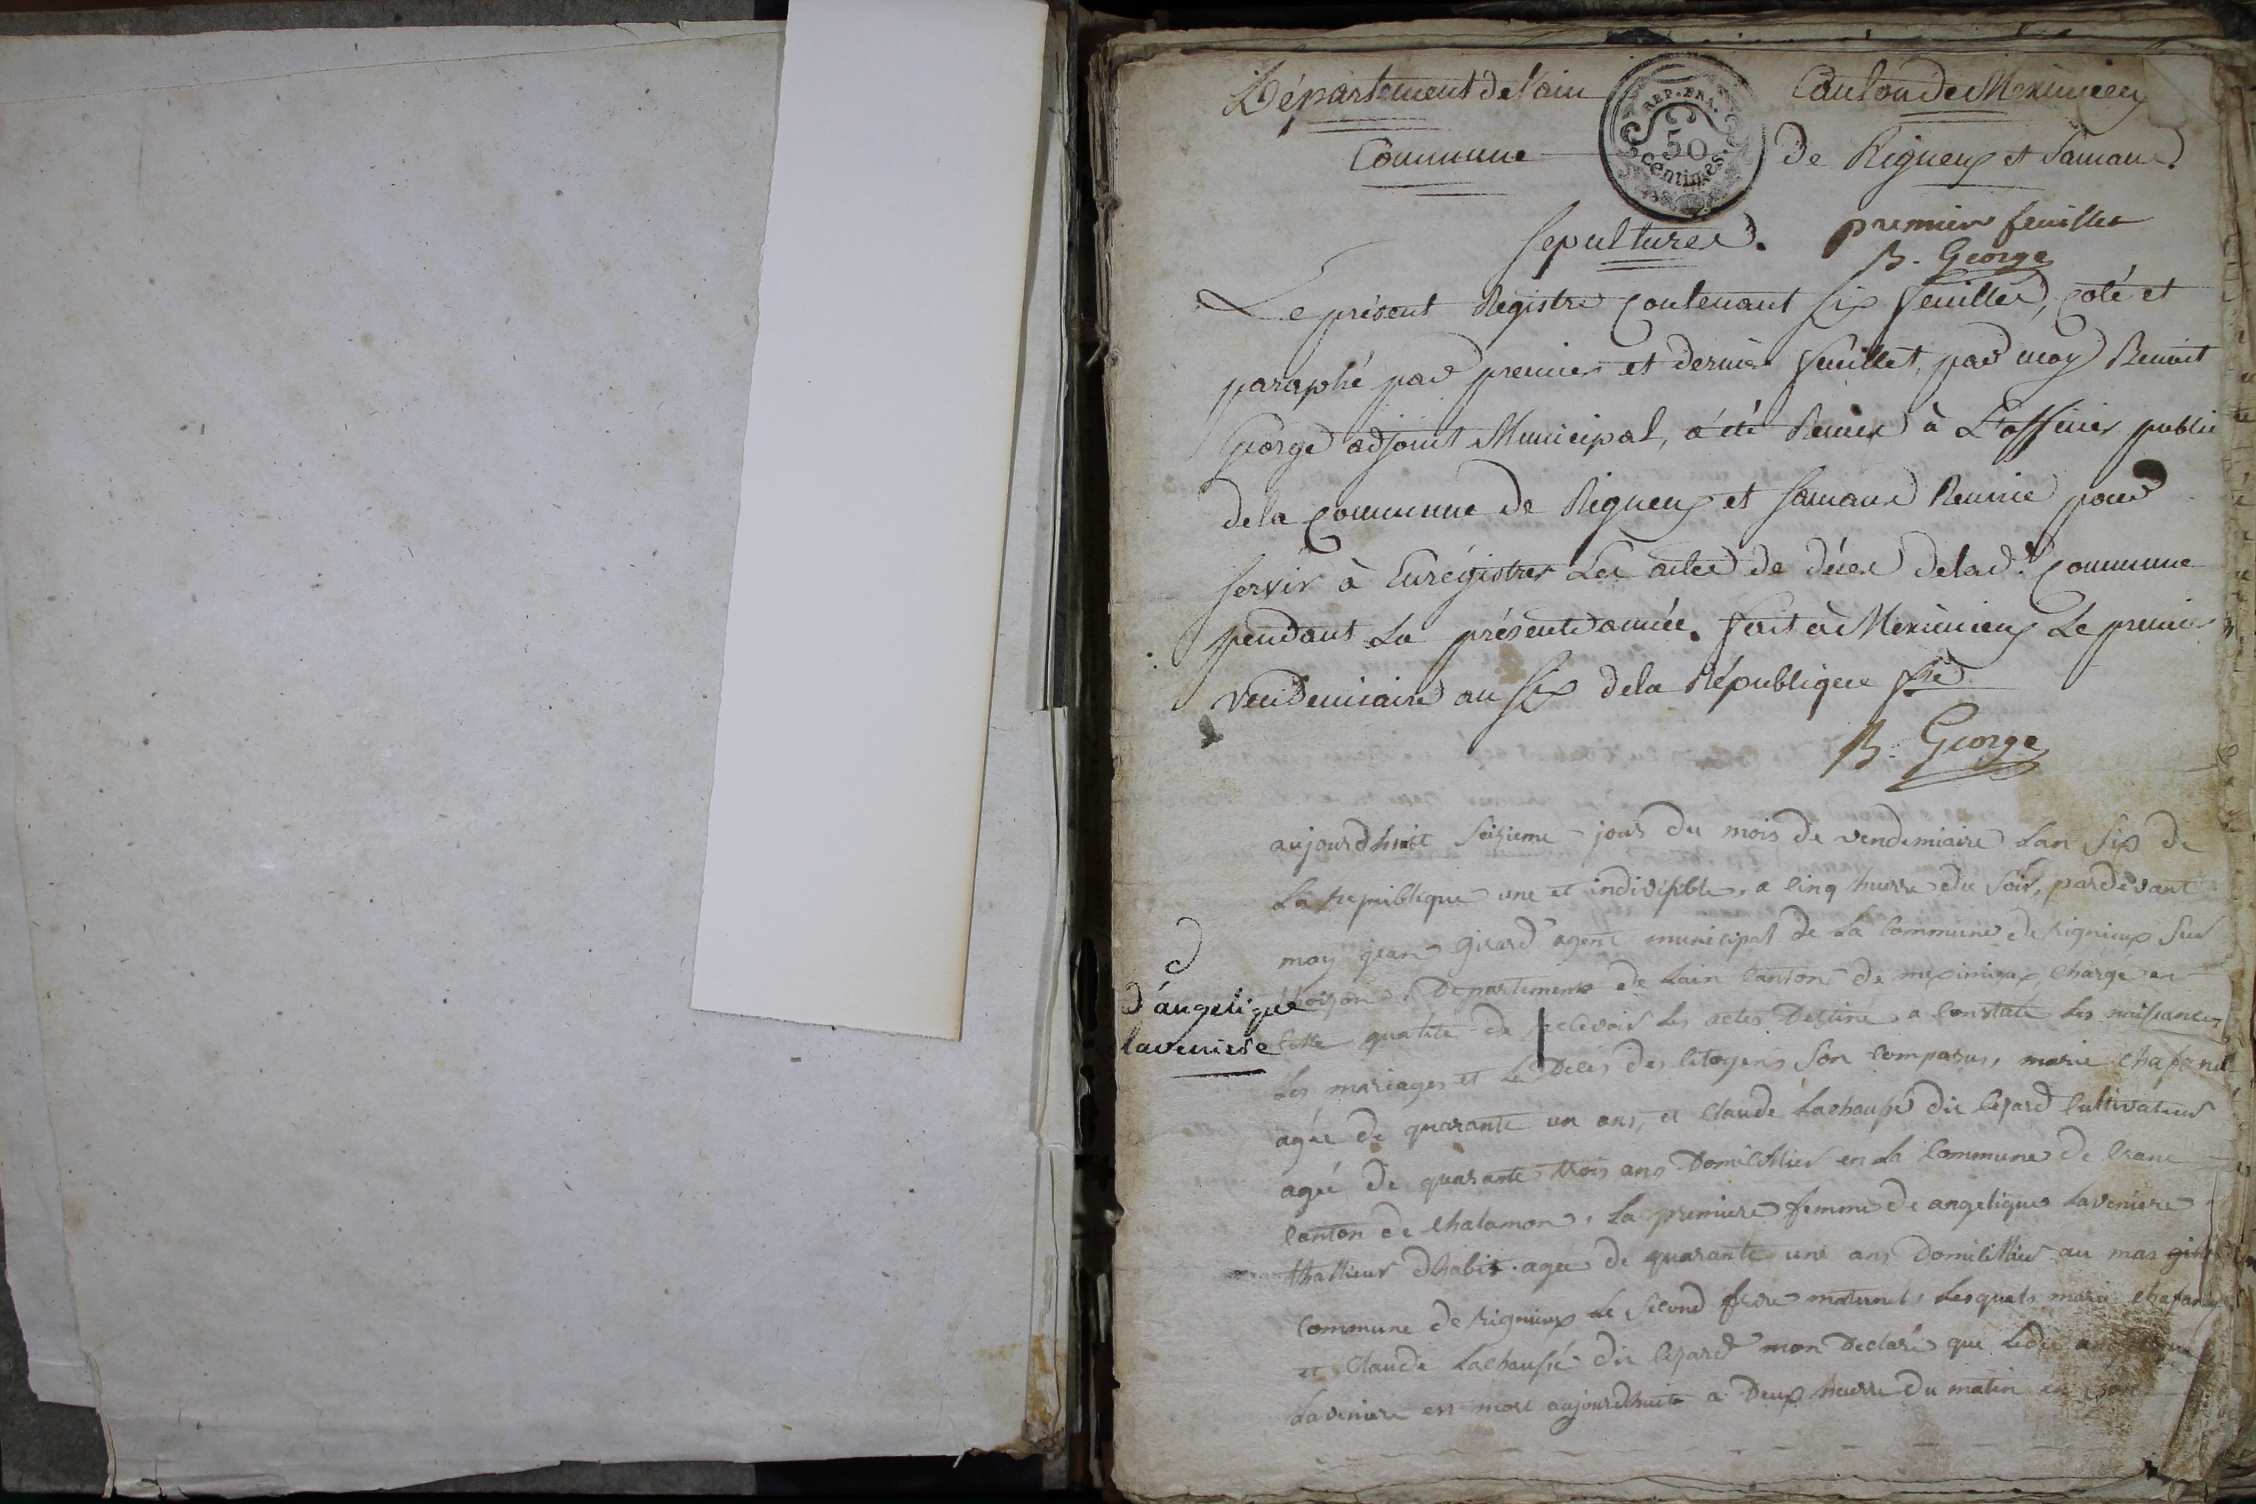 Département de l'ain
Canton de Meximieux
REP. FRA.
50
centimes.
Commune
de Rigneux et Samans
Sepultures.
premier feuillet
B. George
Le présent Registre contenant six feuilles, coté et
paraphé par premier et dernier feuillet, par moy Benoit
George adjoint Municipal, a été Remis à L'officier public
de la commune de Rigneux et Samans Reunie pour
servir à Enrégistrer Les actes de décès de lad.e commune
pendant La présente année. fait à Meximieux Le premier
vendemiaire an six de la République fse
B. George
aujourdhuit seizieme jour du mois de vendemiaire Lan six de
La republique une et indivisible, a cinq heurre du soir, pardevant
moy jean girard agent municipal de La commune de rignieux
Departement de Lain canton de meximieux, chargé en
d'angelique
laveniere
cette qualité de recevoir les actes Destine a constate les naissances
Les mariages et Les Deces des citoyens son comparus, marie
agée de quarante un ans, et Claude Lachaussé dit cultivateur
agée de quarante trois ans Domicillies en la commune de Crane
canton de chalamon, La premiere femme de angelique Laveniere
thallieur dhabit agee de quarante uns ans Domicillies au mas
commune de rignieux Le second frere maternel, Lesquels marie
et Claude Lachaussé dit mon Declaré que Ledit angelique
Laveniere est mort aujourdhuit a Deux heurre du matin en son